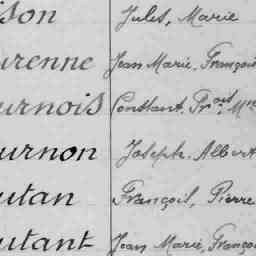 ison Jules, Marie
urenne Jean Marie, François
urnois Constant, Pr
urnon Joseph, Albert
utan François, Pierre
utant Jean Marie, Franço